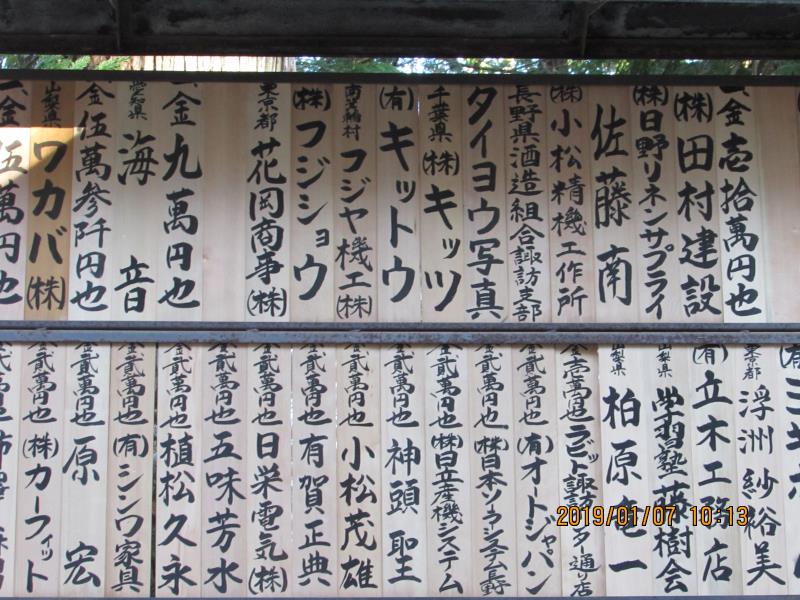 金壱拾萬円也
(株)田村建設
(株)日野リネンサプライ
佐藤 南
(株)小松精機工作所
長野県酒造組合諏訪支部
タイヨウ写真
千葉県 (株)キッツ
(有)キットウ
南箕輪村 フジヤ機工(株)
(株)フジショウ
東京都 花岡商事(株)
一金九萬円也
愛知県 海 音
金伍萬参阡円也
山梨県 ワカバ(株)
金伍萬円也
東京都 浮洲紗裕美
(有)立木工務店
山梨県 学習塾 藤樹会
山梨県 柏原竜一
ラビット諏訪 通り店
金貳萬円也 (有)オートジャパン
金貳萬円也 (株)日本ソーラシステム長野
金貳萬円也 (株)日立産機システム
金貳萬円也 神頭 聖
金貳萬円也 小松茂雄
金貳萬円也 有賀正典
金貳萬円也 日栄電気(株)
金貳萬円也 五味芳水
金貳萬円也 植松久永
金貳萬円也 (有)シンワ家具
金貳萬円也 原 宏
金貳萬円也 (株)カーフィット
2019/01/07 10:13